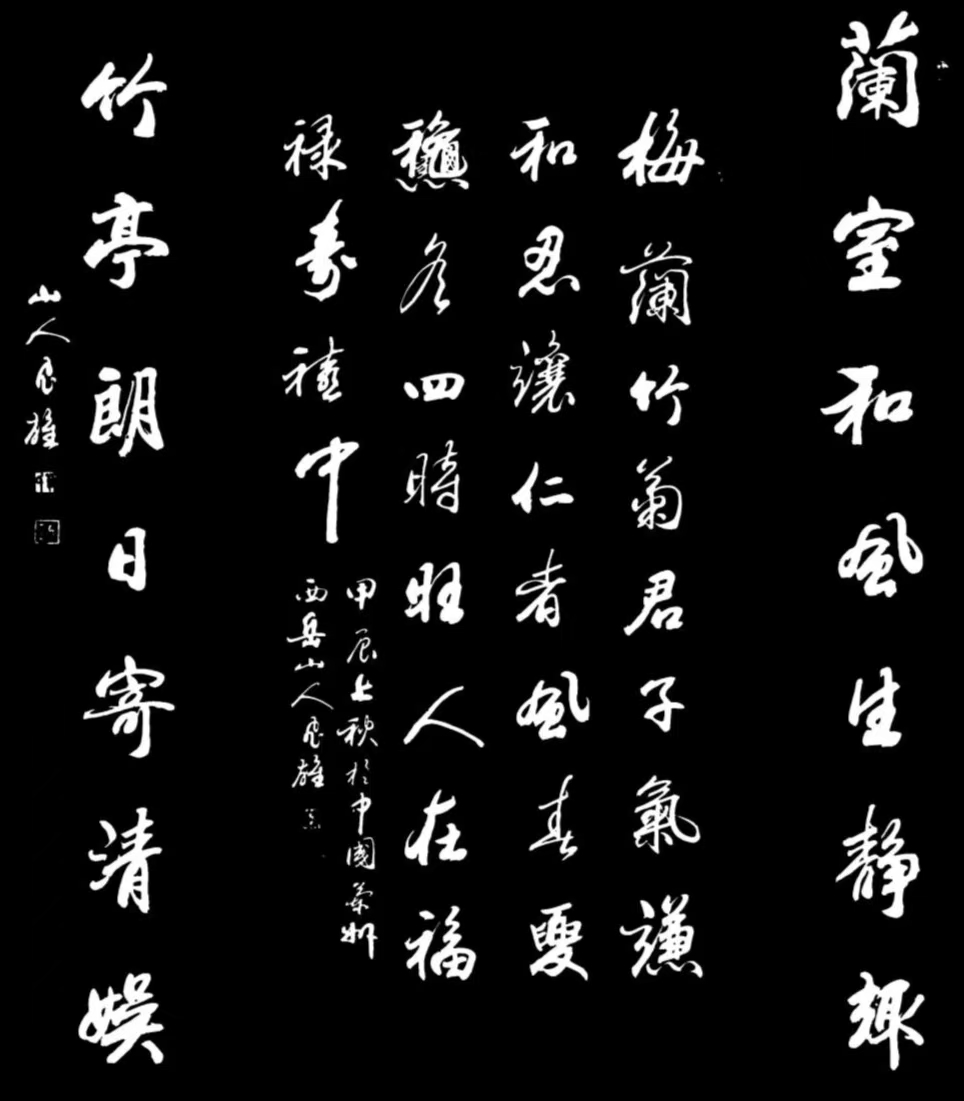 蘭室和風生靜趣
梅蘭竹菊君子氣謙
和忍讓仁者風春夏
龝冬四時旺人在福
禄壽禧中
甲辰上秋於中國州
西岳山人雄
竹亭朗日寄清娛
山人雄